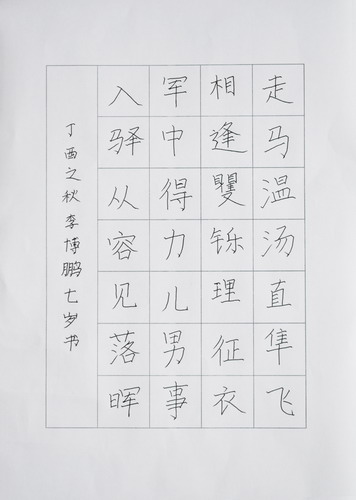 走马温汤直隼飞
相逢矍铄理征衣
军中得力儿男事
入驿从容见落晖
丁酉之秋李博鹏七岁书